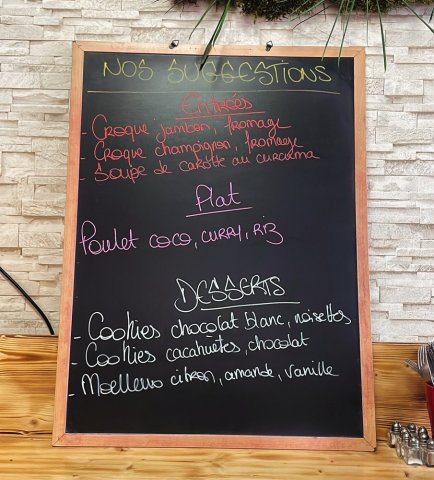 NOS SUGGESTIONS
Entrées
- Croque jambon, fromage
- Croque champignon, fromage
- Soupe de carotte au curcuma
Plat
Poulet coco, curry, riz
DESSERTS
- Cookies chocolat blanc, noisettes
- Cookies cacahuètes, chocolat
- Moelleux citron, amande, vanille